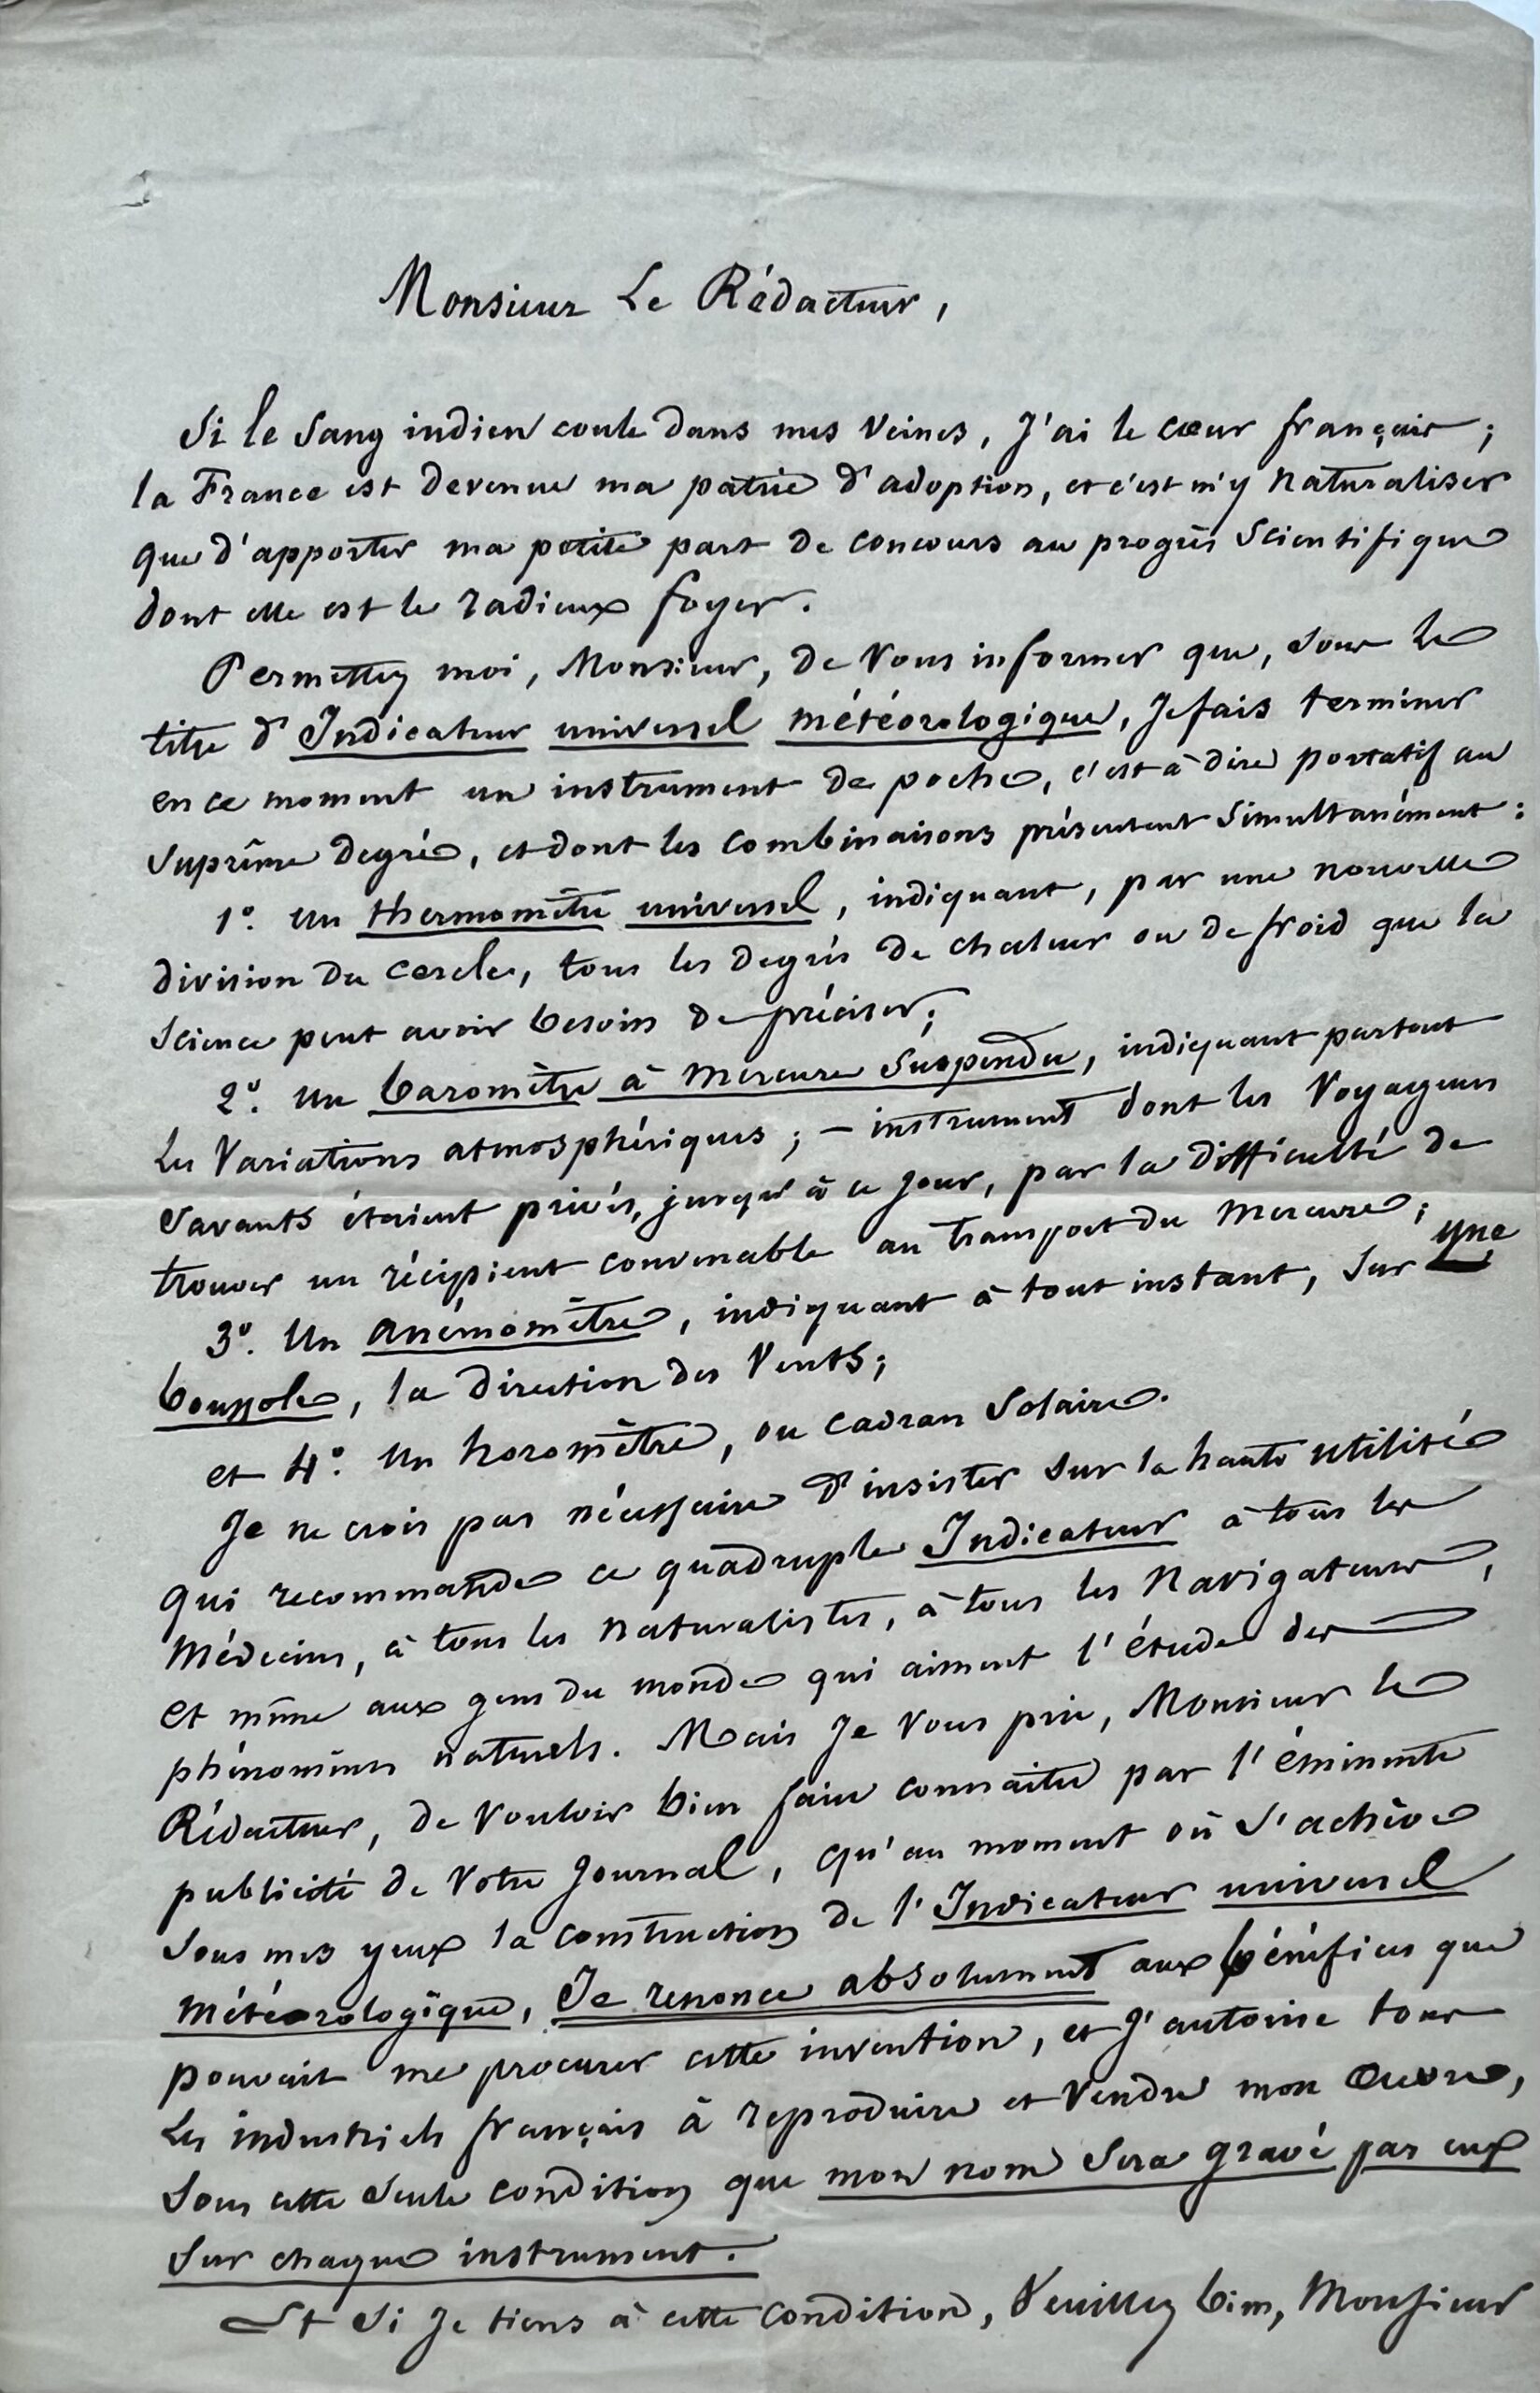 Monsieur Le Rédacteur,
Si le Sang indien coule dans mes Veines, J'ai le cœur français ;
la France est devenue ma patrie d'adoption, et c'est m'y naturaliser
que d'apporter ma petite part de concours au progrès Scientifique
dont elle est le radieux foyer.
Permettez moi, Monsieur, de Vous informer que, sous le
titre d'Indicateur universel météorologique, Je fais terminer
en ce moment un instrument de poche, c'est à dire portatif au
Suprême degré, et dont les combinaisons présentent Simultanément :
1°. un thermomètre universel, indiquant, par une nouvelle
division du cercle, tous les degrés de chaleur ou de froid que la
Science peut avoir besoin de préciser ;
2°. un baromètre à mercure Suspendu, indiquant partout
les Variations atmosphériques ; – instrument dont les Voyageurs
Savants étaient privés, jusqu'à ce jour, par la difficulté de
trouver un récipient convenable au transport du mercure ;
3°. Un anémomètre, indiquant à tout instant, Sur une
boussole, la direction des Vents ;
et 4°. Un horomètre, ou cadran Solaire.
Je ne crois pas nécessaire d'insister Sur la haute utilité
qui recommande ce quadruple Indicateur à tous les
Médecins, à tous les naturalistes, à tous les Navigateurs,
et même aux gens du monde qui aiment l'étude des
phénomènes naturels. Mais Je Vous prie, Monsieur le
Rédacteur, de Vouloir bien faire connaître par l'éminente
publicité de Votre Journal, qu'au moment où S'achève
Sous mes yeux la construction de l'Indicateur universel
météorologique, Je renonce absolument aux bénéfices que
pouvait me procurer cette invention, et J'autorise tous
les industriels français à reproduire et Vendre mon Œuvre,
Sous cette Seule condition que mon nom Sera gravé par eux
Sur chaque instrument.
Et Si Je tiens à cette condition, Veuillez bien, Monsieur